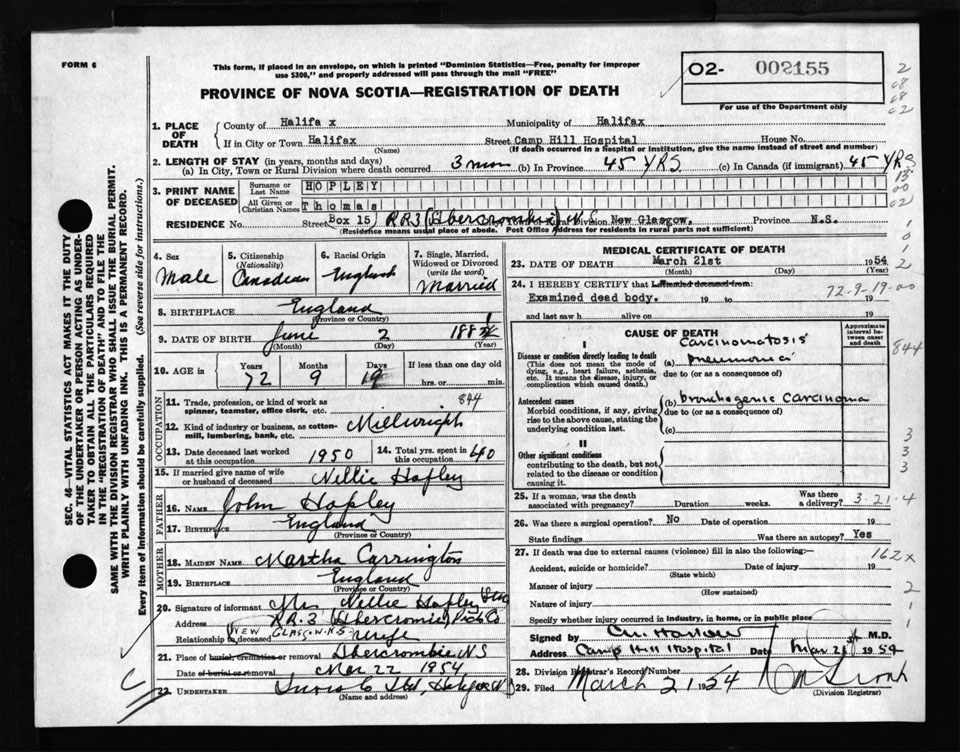 FORM 6
This form, if placed in an envelope, on which is printed "Dominion Statistics—Free, penalty for improper
use $300," and properly addressed will pass through the mail "FREE"
PROVINCE OF NOVA SCOTIA—REGISTRATION OF DEATH
02- 002155
For use of the Department only
2
08
08
02
1. PLACE OF DEATH
County of Halifa x Municipality of Halifax
If in City or Town Halifax Street Camp Hill Hospital House No.
(Name) (If death occurred in a hospital or institution, give the name instead of street and number)
2. LENGTH OF STAY (in years, months and days)
(a) In City, Town or Rural Division where death occurred 3 mon (b) In Province 45 YRS (c) In Canada (if immigrant) 45 YRS
15
00
02
3. PRINT NAME OF DECEASED
Surname or Last Name HOPLEY
All Given or Christian Names Thomas
RESIDENCE No. Street Box 15, RR3 (Abercrombie) N.S. Rural Division New Glasgow, Province N.S.
(Residence means usual place of abode. Post Office Address for residents in rural parts not sufficient)
4. Sex
Male
5. Citizenship
(Nationality)
Canadian
6. Racial Origin
English
7. Single, Married, Widowed or Divorced
(write the word)
Married
8. BIRTHPLACE England
(Province or Country)
9. DATE OF BIRTH June 2 188
(Month) (Day) (Year)
10. AGE in Years Months Days If less than one day old
72 9 19 hrs. or min.
OCCUPATION
11. Trade, profession, or kind of work as
spinner, teamster, office clerk, etc. 844
12. Kind of industry or business, as cotton-
mill, lumbering, bank, etc. Millwright
13. Date deceased last worked
at this occupation 1950
14. Total yrs. spent in
this occupation 40
15. If married give name of wife
or husband of deceased Nellie Hopley
FATHER
16. NAME John Hopley
17. BIRTHPLACE England
(Province or Country)
MOTHER
18. MAIDEN NAME Martha Carrington
19. BIRTHPLACE England
(Province or Country)
20. Signature of informant Mrs Nellie Hopley
Address R.R.3 Abercrombie Pictou Co
Relationship to deceased NEW GLASGOW. N.S wife
21. Place of burial, cremation or removal Abercrombie N.S
Date of burial or removal Mar 22 1954
22. UNDERTAKER
(Name and address)
MEDICAL CERTIFICATE OF DEATH
23. DATE OF DEATH March 21st 1954
(Month) (Day)
24. I HEREBY CERTIFY that I attended deceased from:
72-9-19-00
Examined dead body. 19 to 19
and last saw h alive on 19
CAUSE OF DEATH
Approximate interval between onset and death
I
Carcinomatosis
Disease or condition directly leading to death
(This does not mean the mode of
dying, e.g., heart failure, asthenia,
etc. It means the disease, injury, or
complication which caused death.)
(a) pneumonia
due to (or as a consequence of)
844
Antecedent causes
Morbid conditions, if any, giving
rise to the above cause, stating the
underlying condition last.
(b) bronchogenic carcinoma
due to (or as a consequence of)
(c)
II
Other significant conditions
contributing to the death, but not
related to the disease or condition
causing it.
3
3
3
25. If a woman, was the death
associated with pregnancy? Duration weeks. Was there a delivery?
3-21-4
26. Was there a surgical operation? No Date of operation 19
State findings Was there an autopsy? Yes
27. If death was due to external causes (violence) fill in also the following:—
162x
Accident, suicide or homicide? Date of injury 19
(State which)
Manner of injury
(How sustained)
2
Nature of injury
1
Specify whether injury occurred in industry, in home, or in public place
Signed by M.D.
Address Camp Hill Hospital Date Mar 21st 1954
28. Division Registrar's Record Number
29. Filed March 21 1954
(Division Registrar)
SEC. 46—VITAL STATISTICS ACT MAKES IT THE DUTY
OF THE UNDERTAKER OR PERSON ACTING AS UNDER-
TAKER TO OBTAIN ALL THE PARTICULARS REQUIRED
IN THE "REGISTRATION OF DEATH" AND TO FILE THE
SAME WITH THE DIVISION REGISTRAR WHO SHALL ISSUE THE BURIAL PERMIT.
WRITE PLAINLY WITH UNFADING INK. THIS IS A PERMANENT RECORD.
Every item of information should be carefully supplied. (See reverse side for instructions.)